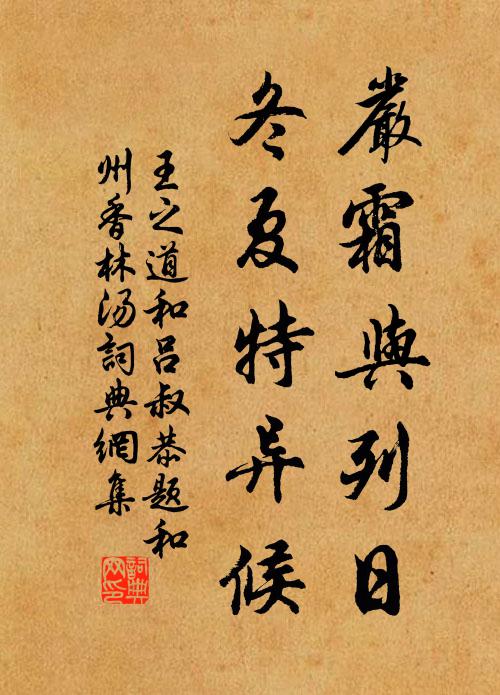 嚴霜與列日
冬夏特异候
王之道和呂叔恭題和
州香林湯詞典網集
詞典网印